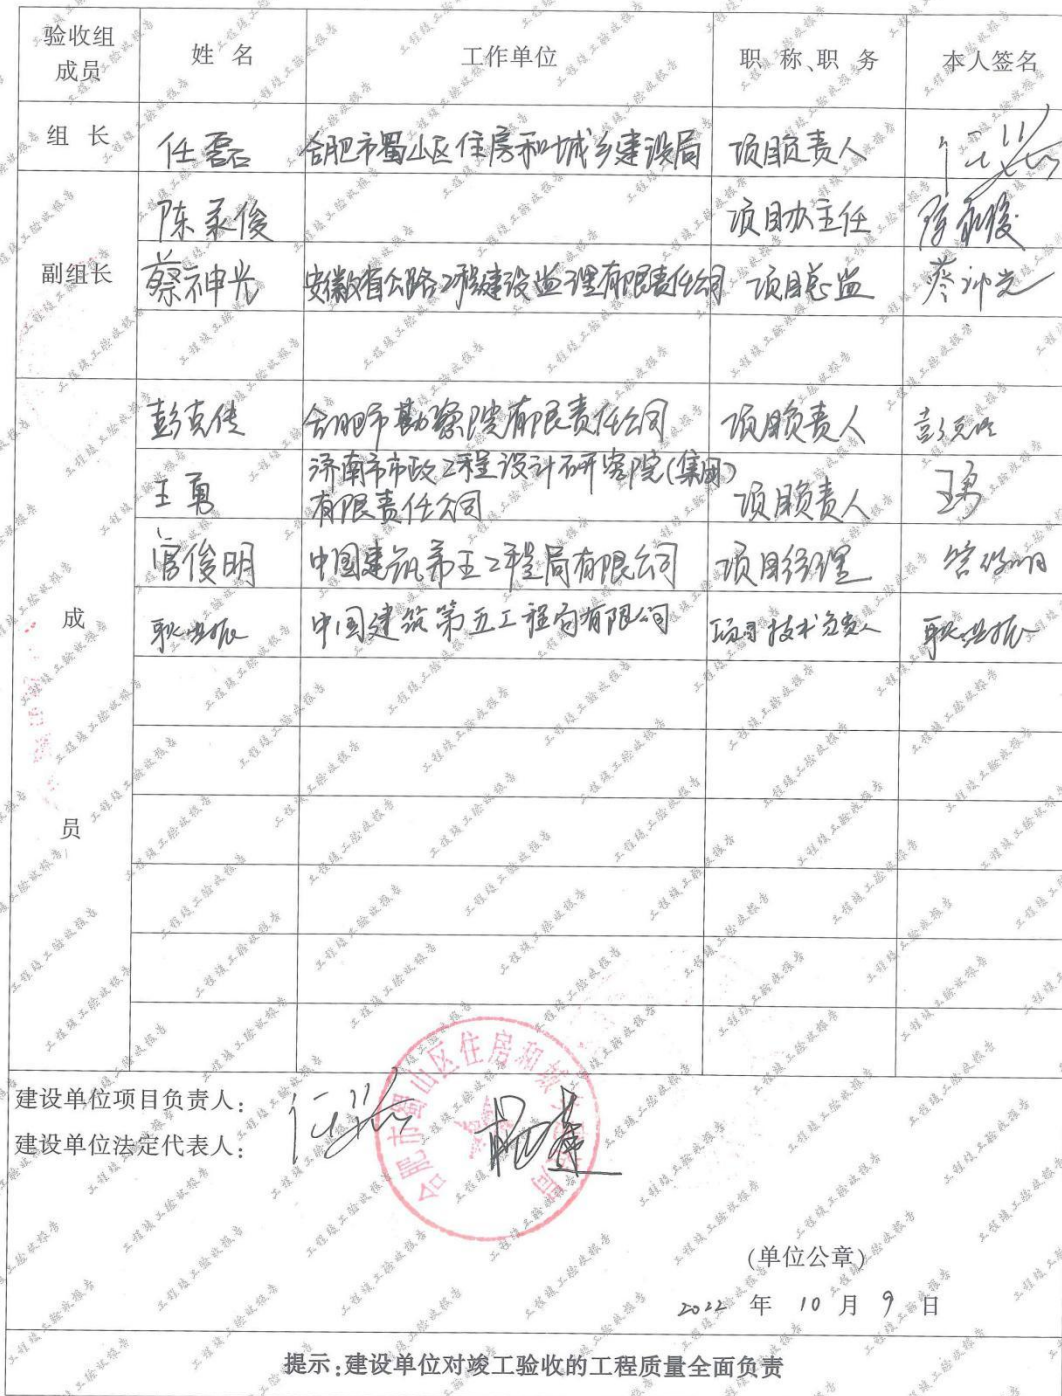 验收组成员 姓 名 工作单位 职 称、职 务 本人签名
组 长 任磊 合肥市蜀山区住房和城乡建设局 项目负责人
副组长
陈永俊 项目办主任 陈永俊
蔡神光 安徽省公路工程建设监理有限责任公司 项目总监 蔡神光
成员
彭克传 合肥市勘察院有限责任公司 项目负责人 彭克传
王勇 济南市市政工程设计研究院(集团)
有限责任公司 项目负责人 王勇
管俊明 中国建筑第五工程局有限公司 项目经理 管俊明
中国建筑第五工程局有限公司 项目技术负责人
建设单位项目负责人:
建设单位法定代表人:
合肥市蜀山区住房和城乡建设局
(单位公章)
2022 年 10 月 9 日
提示:建设单位对竣工验收的工程质量全面负责
工程竣工验收报告